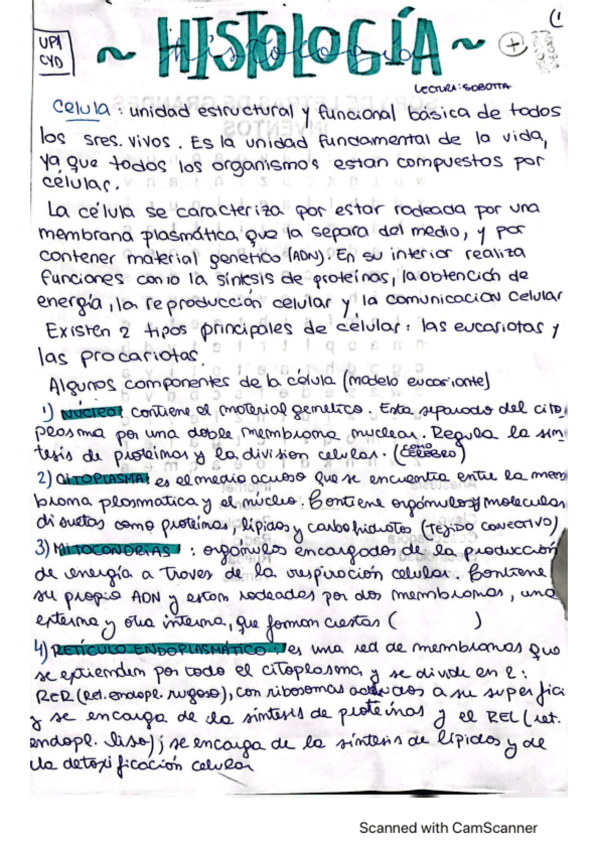 UPI
CYD
~ HISTOLOGÍA ~ +
1
LECTURA: SOBOTTA
Celula: unidad estructural y funcional básica de todos
los sres. vivos. Es la unidad fundamental de la vida,
ya que todos los organismos estan compuestos por
célular.
La célula se caracteriza por estar rodeada por una
membrana plasmática que la separa del medio, y por
contener material genético (ADN). En su interior realiza
funciones como la síntesis de proteínas, la obtención de
energía, la reproducción celular y la comunicacion celular
Existen 2 tipos principales de célular: las eucariotas y
las procariotas.
Algunos componentes de la célula (modelo eucarionte)
1) NÚCLEO: contiene el material genetico. Esta separado del cito
plasma por una doble membrana nuclear. Regula la sin
tesis de proteinas y la division celular. (COMO CEREBRO)
2) CITOPLASMA: es el medio acuoso que se encuentra entre la mem
brana plasmatica y el núcleo. Contiene orgánulos y moleculas
disueltas como proteinas, lípidos y carbohidratos (TEJIDO CONECTIVO)
3) MITOCONDRIAS: orgánulos encargados de la producción
de energía a traves de la respiración celular. Contiene
su propio ADN y estan rodeadas por dos membranas, una
externa y otra interna, que forman crestas ( )
4) RETÍCULO ENDOPLASMÁTICO: es una red de membranas que
se extienden por todo el citoplasma y se divide en 2:
RER (ret. endopl. rugoso), con ribosomas a su superfici
y se encarga de la síntesis de proteínas y el REL (ret.
endopl. liso); se encarga de la síntesis de lípidos y de
la detoxificación celular
Scanned with CamScanner